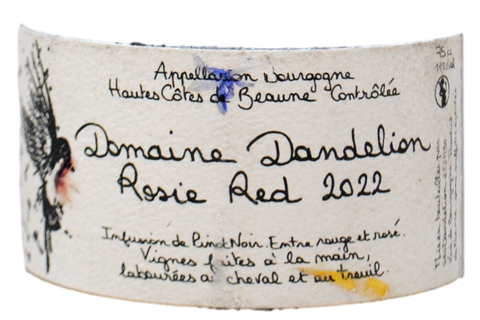 Appellation Bourgogne
Hautes Côtes de Beaune Contrôlée
Domaine Dandelion
Rosie Red 2022
Infusion de Pinot Noir. Entre rouge et rosé.
Vignes faites à la main,
labourées à cheval et au treuil.
75cl